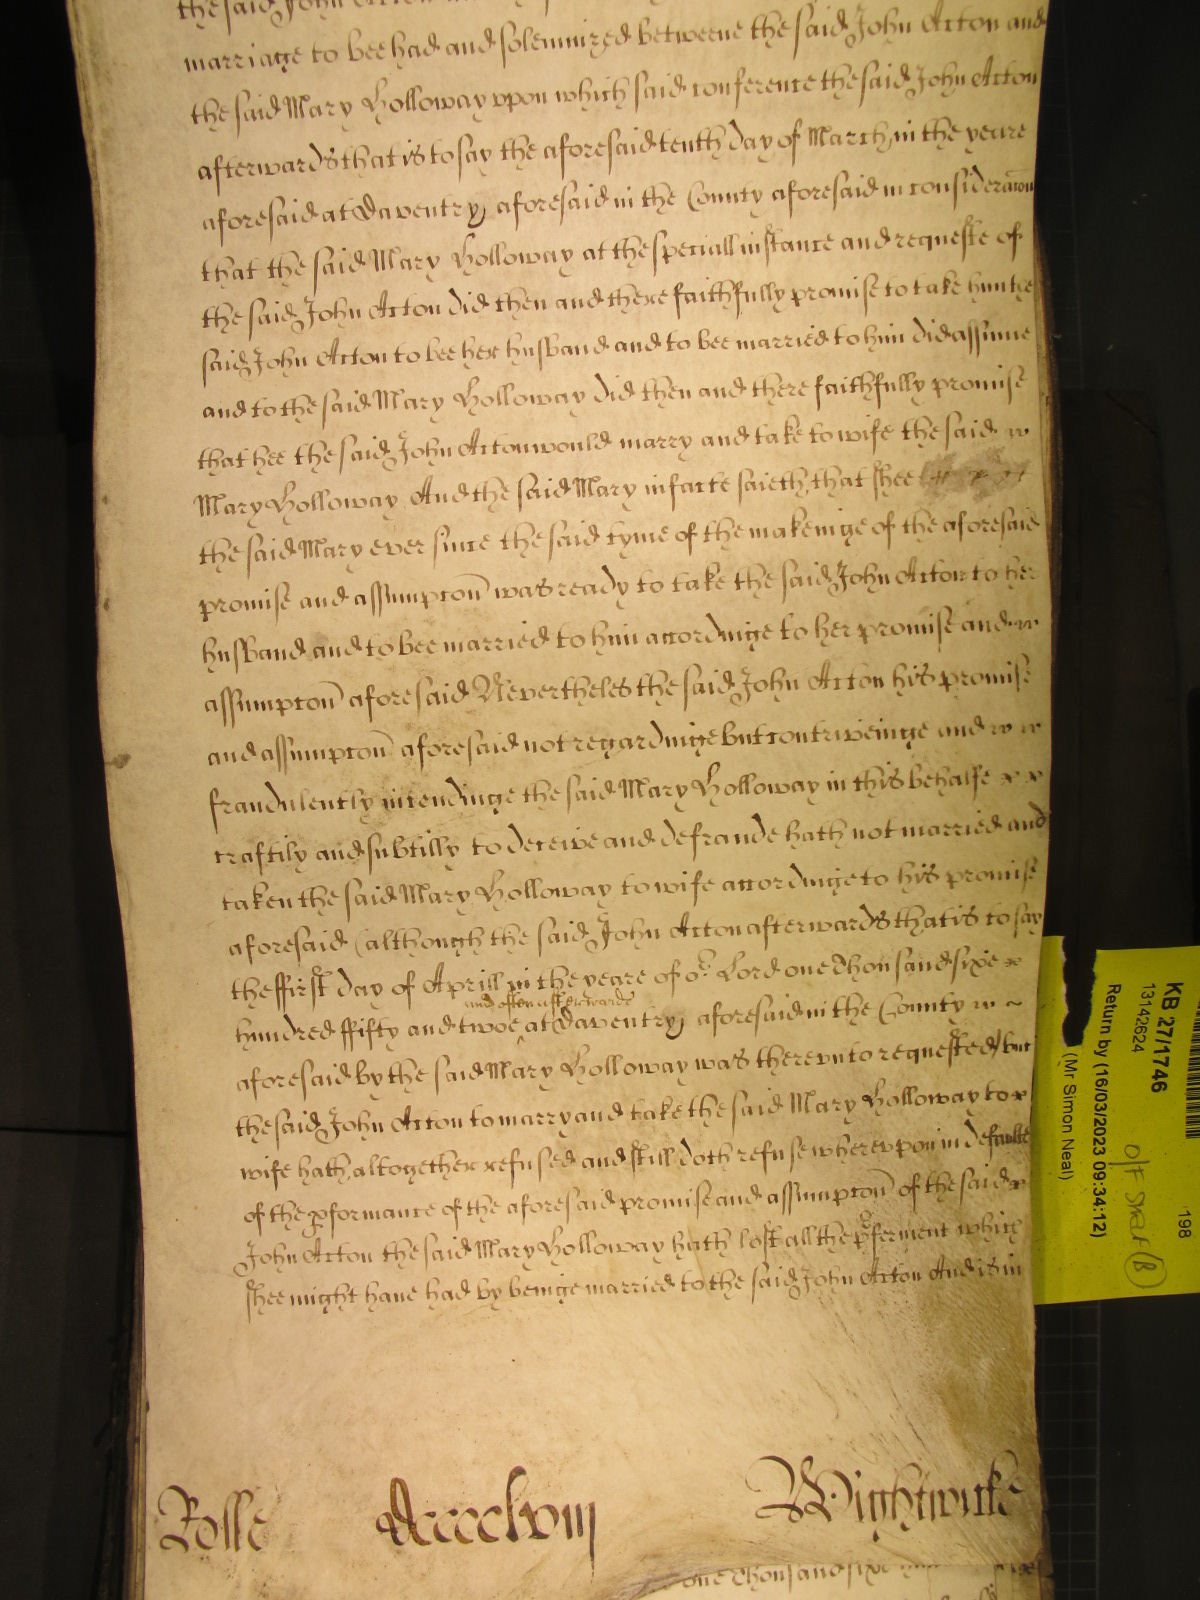 the said John Acton
marriage to bee had and solemnized betweene the said John Acton and
the said Mary Holloway vpon which said conference the said John Acton
afterwards that is to say the aforesaid tenth day of March in the yeare
aforesaid at Daventry aforesaid in the County aforesaid in consideracion
that the said Mary Holloway at the speciall instance and requeste of
the said John Acton did then and there faithfully promise to take him the
said John Acton to bee her husband and to bee married to him did assume
and to the said Mary Holloway did then and there faithfully promise
that hee the said John Acton would marry and take to wife the said
Mary Holloway And the said Mary in facte saieth that shee
the said Mary ever since the said tyme of the makeinge of the aforesaid
promise and assumpcon was ready to take the said John Acton to her
husband and to bee married to him accordinge to her promise and
assumpcon aforesaid Nevertheles the said John Acton his promise
and assumpcon aforesaid not regardinge but contriveinge and
fraudulently intendinge the said Mary Holloway in this behalfe
craftily and subtilly to deceive and defraude hath not married and
taken the said Mary Holloway to wife accordinge to his promise
aforesaid (although the said John Acton afterwards that is to say
the ffirst day of Aprill in the yeare of or Lord one Thousand sixe
and often afterwards
hundred ffifty and twoe at Daventry aforesaid in the County
aforesaid by the said Mary Holloway was therevnto requested) but
the said John Acton to marry and take the said Mary Holloway to
wife hath altogether refused and still doth refuse wherevpon in defaulte
of the pformance of the aforesaid promise and assumpcon of the said
John Acton the said Mary Holloway hath lost all the pferment which
shee might have had by beinge married to the said John Acton And is in
Rosse dcccclviij Wightwicke
one Thousand sixe
KB 27/1746
13142624
Return by (16/03/2023 09:34:12)
(Mr Simon Neal)
198
O/F Shelf (B)